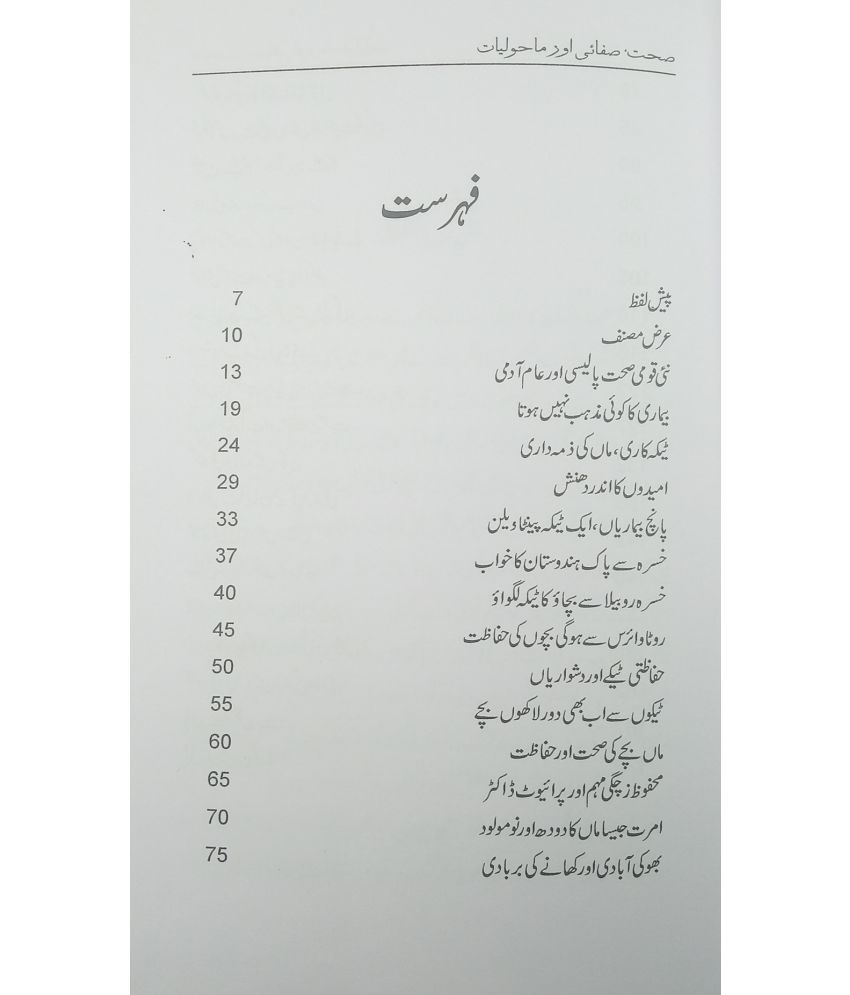 صحت، صفائی اور ماحولیات
فہرست
پیش لفظ 7
عرض مصنف 10
نئی قومی صحت پالیسی اور عام آدمی 13
بیماری کا کوئی مذہب نہیں ہوتا 19
ٹیکہ کاری، ماں کی ذمہ داری 24
امیدوں کا اندر دھنش 29
پانچ بیماریاں، ایک ٹیکہ پینٹاویلن 33
خسرہ سے پاک ہندوستان کا خواب 37
خسرہ روبیلا سے بچاؤ کا ٹیکہ لگواؤ 40
روٹا وائرس سے ہوگی بچوں کی حفاظت 45
حفاظتی ٹیکے اور دشواریاں 50
ٹیکوں سے اب بھی دور لاکھوں بچے 55
ماں بچے کی صحت اور حفاظت 60
محفوظ زچگی مہم اور پرائیوٹ ڈاکٹر 65
امرت جیسا ماں کا دودھ اور نومولود 70
بھوکی آبادی اور کھانے کی بربادی 75